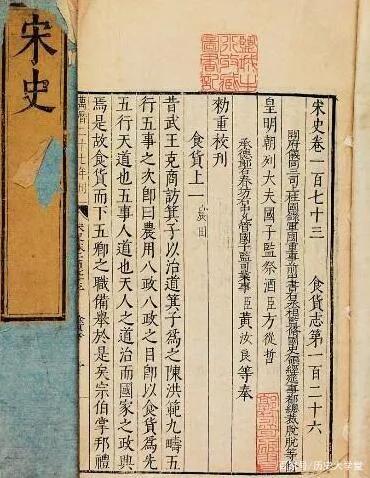 宋史
宋史卷一百七十三 食貨志第一百二十六
開府儀同三司上柱國錄軍國重事前中書右丞相監修國史領經筵事都總裁脫脫等
皇明朝列大夫國子監祭酒臣方從哲
承德郎右春坊右中允管國子監司業事臣黃汝良等奉
勅重校刊
食貨上一 農田
昔武王克商訪箕子以治道箕子爲之陳洪範九疇五
行五事之次卽曰農用八政八政之目卽以食貨爲先
五行天道也五事人道也天人之道治而國家之政興
焉是故食貨而下五卿之職備舉於是矣宗伯掌邦禮
萬曆二十七年刊
历史大学堂